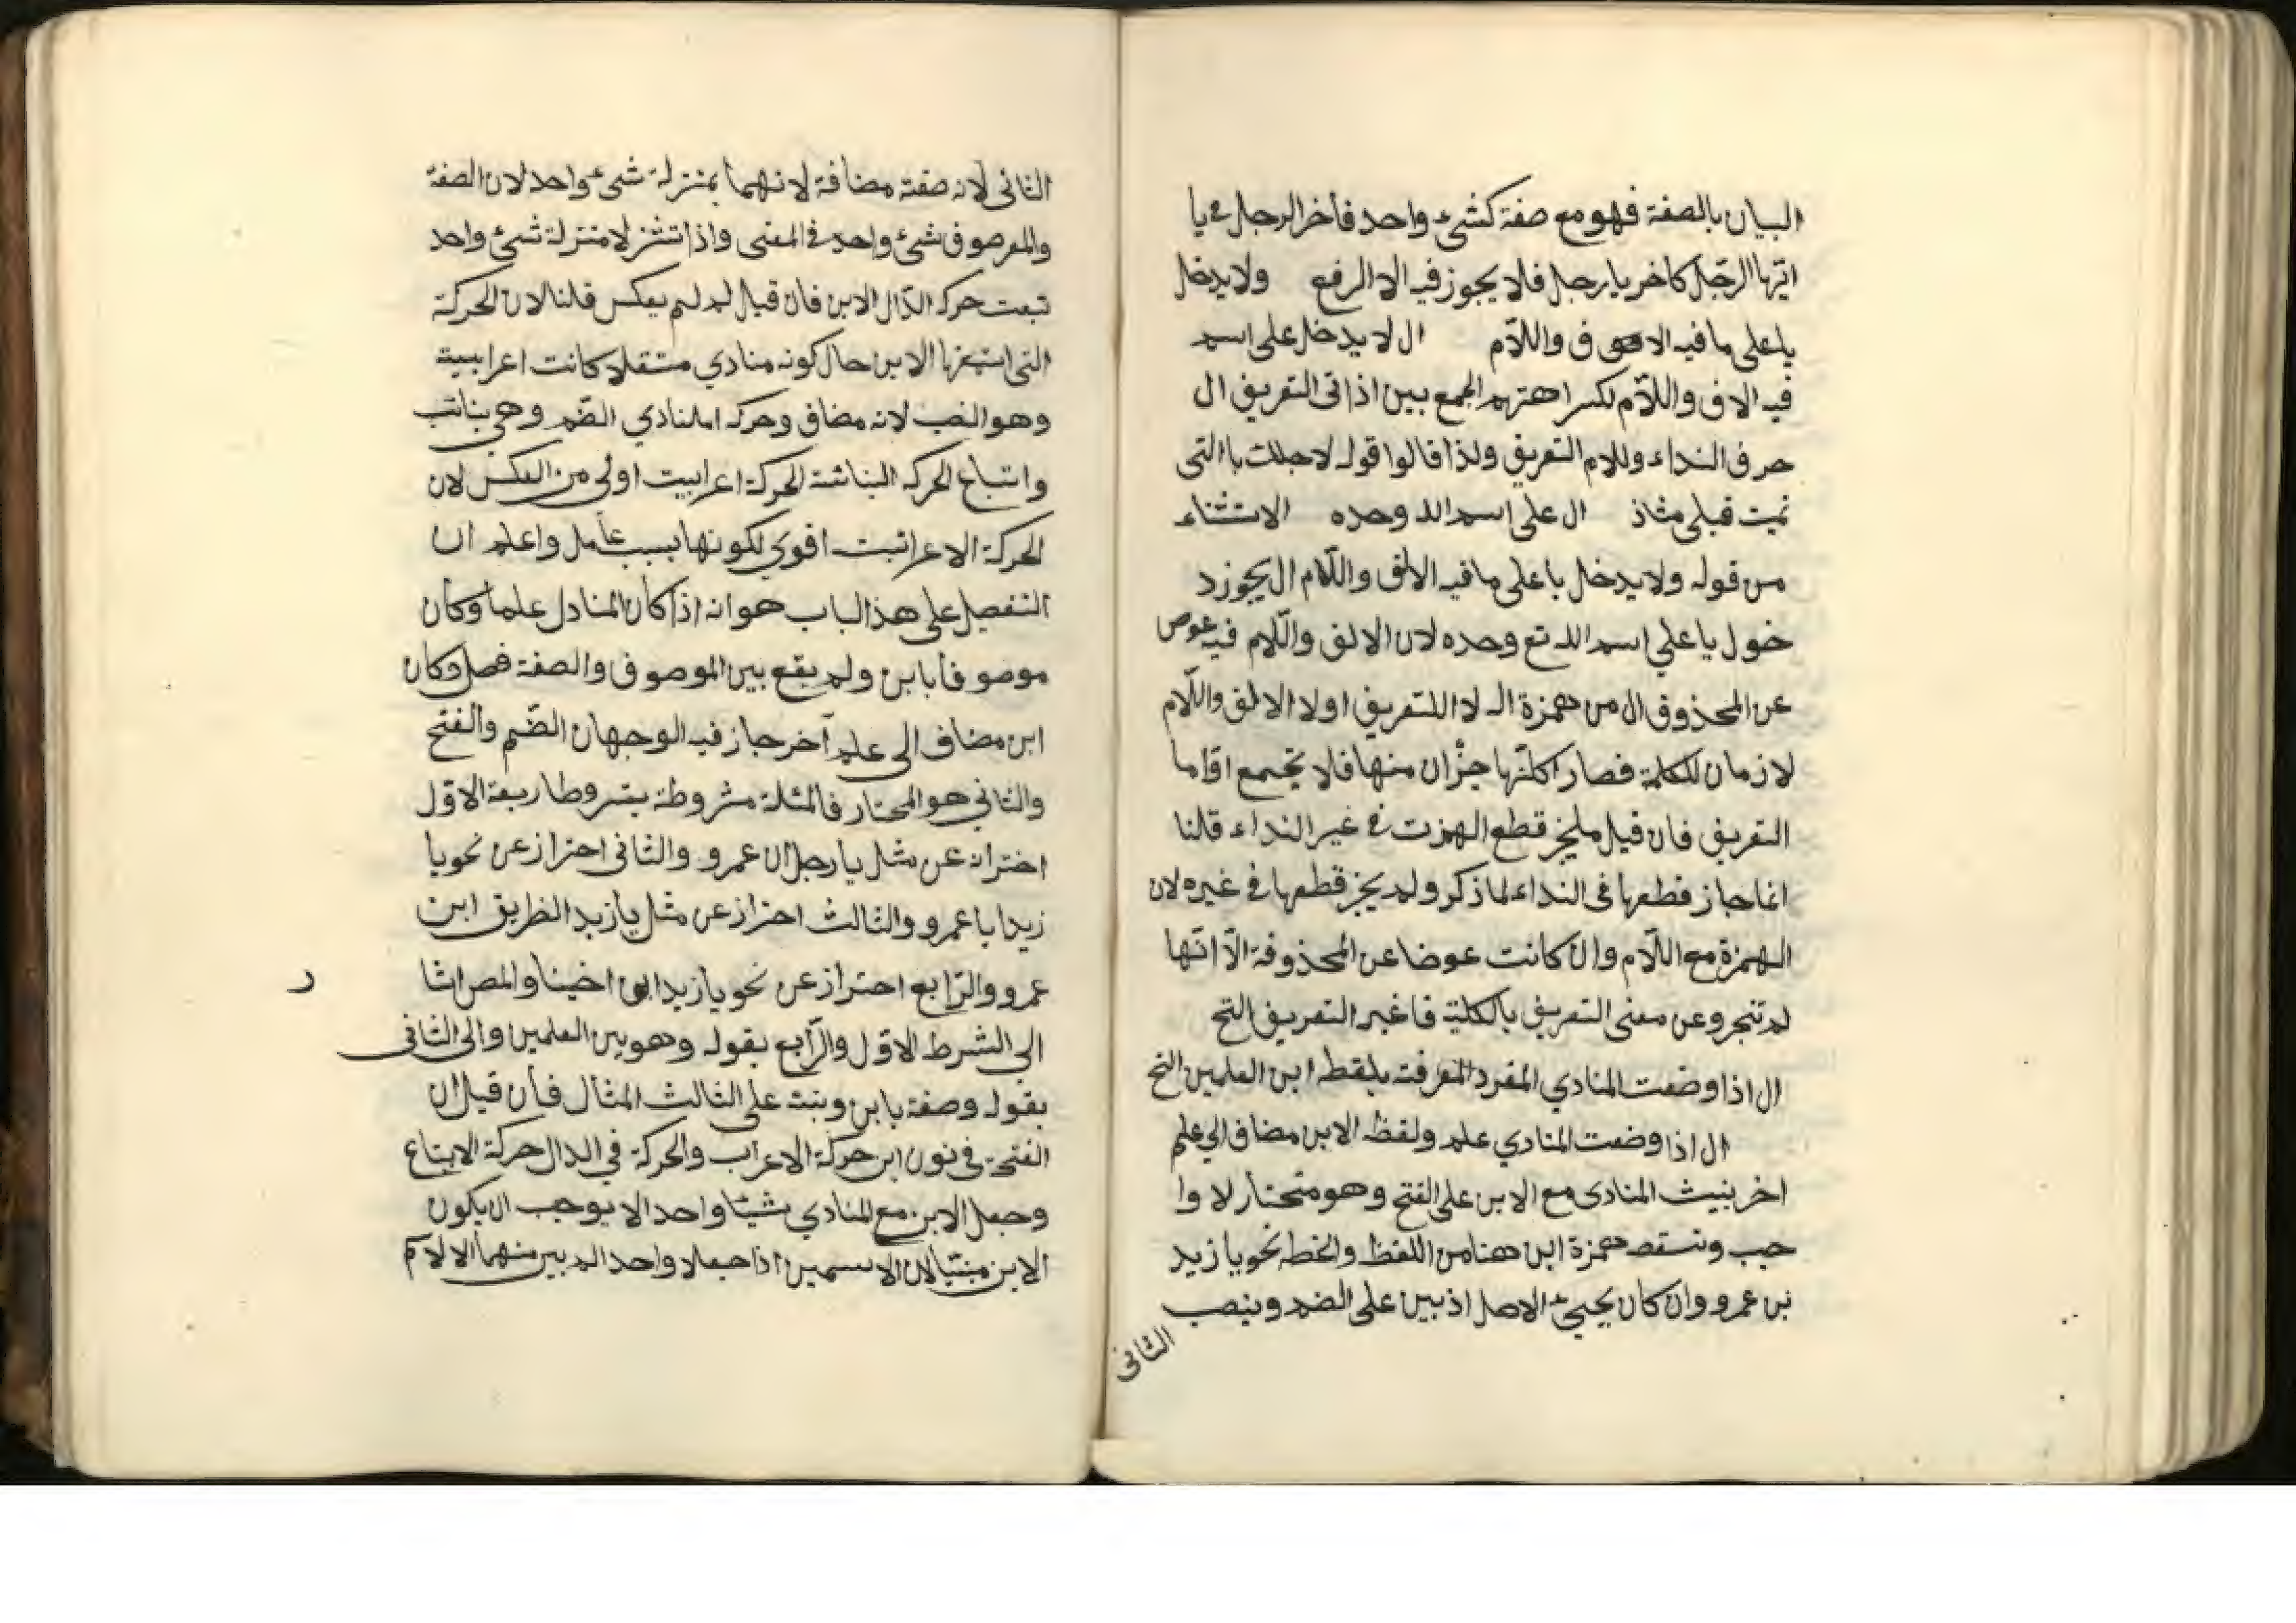 البيان بالصفة فهو مع صفة كشىء واحد فاخر الرجل فى يا
ايّها الرّجل كاخر يا رجل فلا يجوز فيه الا الرفع ولا يدخل
يا على ما فيه الا ف واللّام ال لا يدخل على اسم
فيه الاف واللّام لكراهتهم الجمع بين اذاتى التعريف ال
حرف النداء وللام التعريف ولذا قالوا قوله لاجلك يا التى
تميت قبلى مثاذ ال على اسم الله وحده الاستثناء
من قوله ولا يدخل يا على ما فيه الالف واللّام ال يجوز د
خول يا على اسم الله تع وحده لان الالف واللّام فيه عوص
عن المحذوف ال من همزة اله لا للتعريف اولا الالف واللّام
لازمان للكلمة فصار اكلنّها جزْان منها فلا تجتمع اقاما
التعريف فان قيل ملخز قطع الهمزت فى غير النداء قلنا
انما جاز قطعها فى النداء لما ذكر ولم يجز قطعها فى غيره لان
الهمزة مع اللّام وان كانت عوضا عن المحذوفة الّا انّها
لم تتجرو عن معنى التعريف بالكلية فاغير التعريف التح
ال اذا وضعت المنادي المفرد المعرفت بلفظ ابن العلمين التح
ال اذا وضعت المنادي علم ولفظ الابن مضاف الي علم
اخر بنيث المنادى مع الابن على الفتح وهو متحنار لا وا
جب وتسقط همزة ابن هنا من اللفظ والخط نحو يا زيد
بن عمرو وان كان يحيىء الاصل اذ بين على الضم وينصب
الثانى
الثانى لانه صفة مضافة لانهما بمنزلة شىء واحد لان الصفة
والمرصوف شئ واحد فى المعنى واذا تنثز لا منزلة شئ واحد
تبعت حركه الدّال الابن فان قيل لم لم يعكس قلنا لان الحركة
التى استخرها الابن حال كونه منادي مستقلا كانت اعرابيية
وهو النصب لانه مضاف وحركه المنادي الضّم وهي بنائب
واتباع الحركه البنائثة الحركة اعرابيت اولى من العكس لان
الحركة الاعرائبت اقوي لكونها بسبب عامل واعلم ان
التفصيل على هذ الباب هو انه اذا كان المنادل علما وكان
موصوفا بابن ولم يقع بين الموصوف والصفة فصل وكان
ابن مضاف الى علم آخر جاز فيه الوجهان الضّم والفتح
والثاني هو المحتار فالمثلة مشروطة بشروط اربعة الاوّل
اختران عن مثل يا رجل ان عمرو والثانى احتراز عن نحو يا
زيدا با عمرو والثالث احتراز عن مثل يا زيد الظريق ابن
عمرو والرّابع احتراز عن نحو يا زيد ابن اخينا والمص اشا ر
الى الشرط الاوّل والرّابع بقوله وهو بين العلمين والى الثانى
بقوله وصفة بابن وبنت على الثالث المثال فأن قيل ان
الفتحة فى نون ابن حركة الاعراب والحركة في الدال حركة الابتاع
وجعل الابن مع المنادي شيئا واحد الا يوجب ان يكون
الابن مبنيّا لان الاسمين اذا جعلا واحد الم بين منهما الا لا م